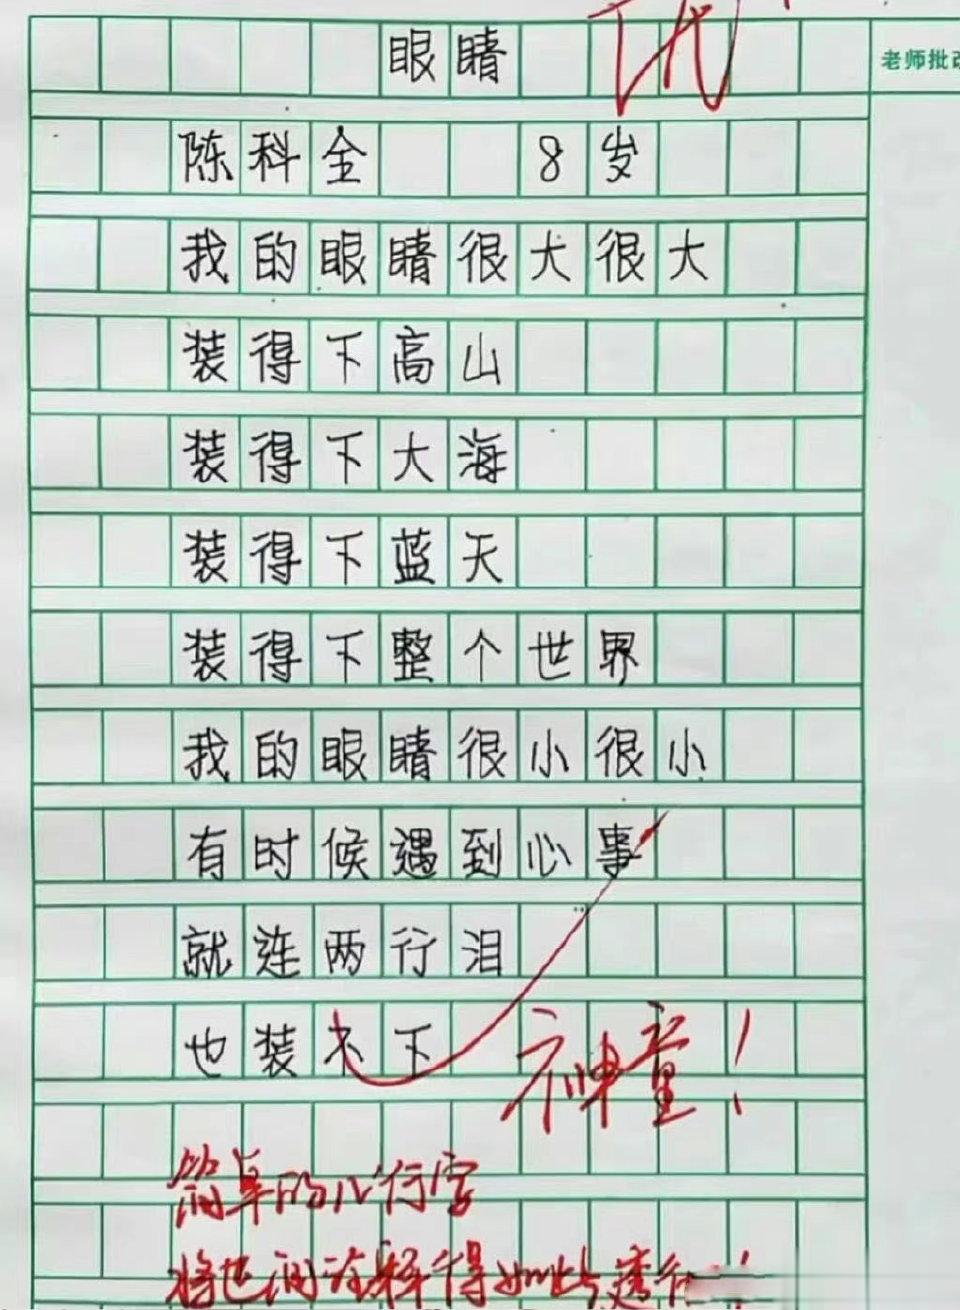 眼睛 优
老师批改
陈科全 8岁
我的眼睛很大很大
装得下高山
装得下大海
装得下蓝天
装得下整个世界
我的眼睛很小很小
有时候遇到心事
就连两行泪
也装不下
神童！
简单的几行字
将世间诠释得如此透彻